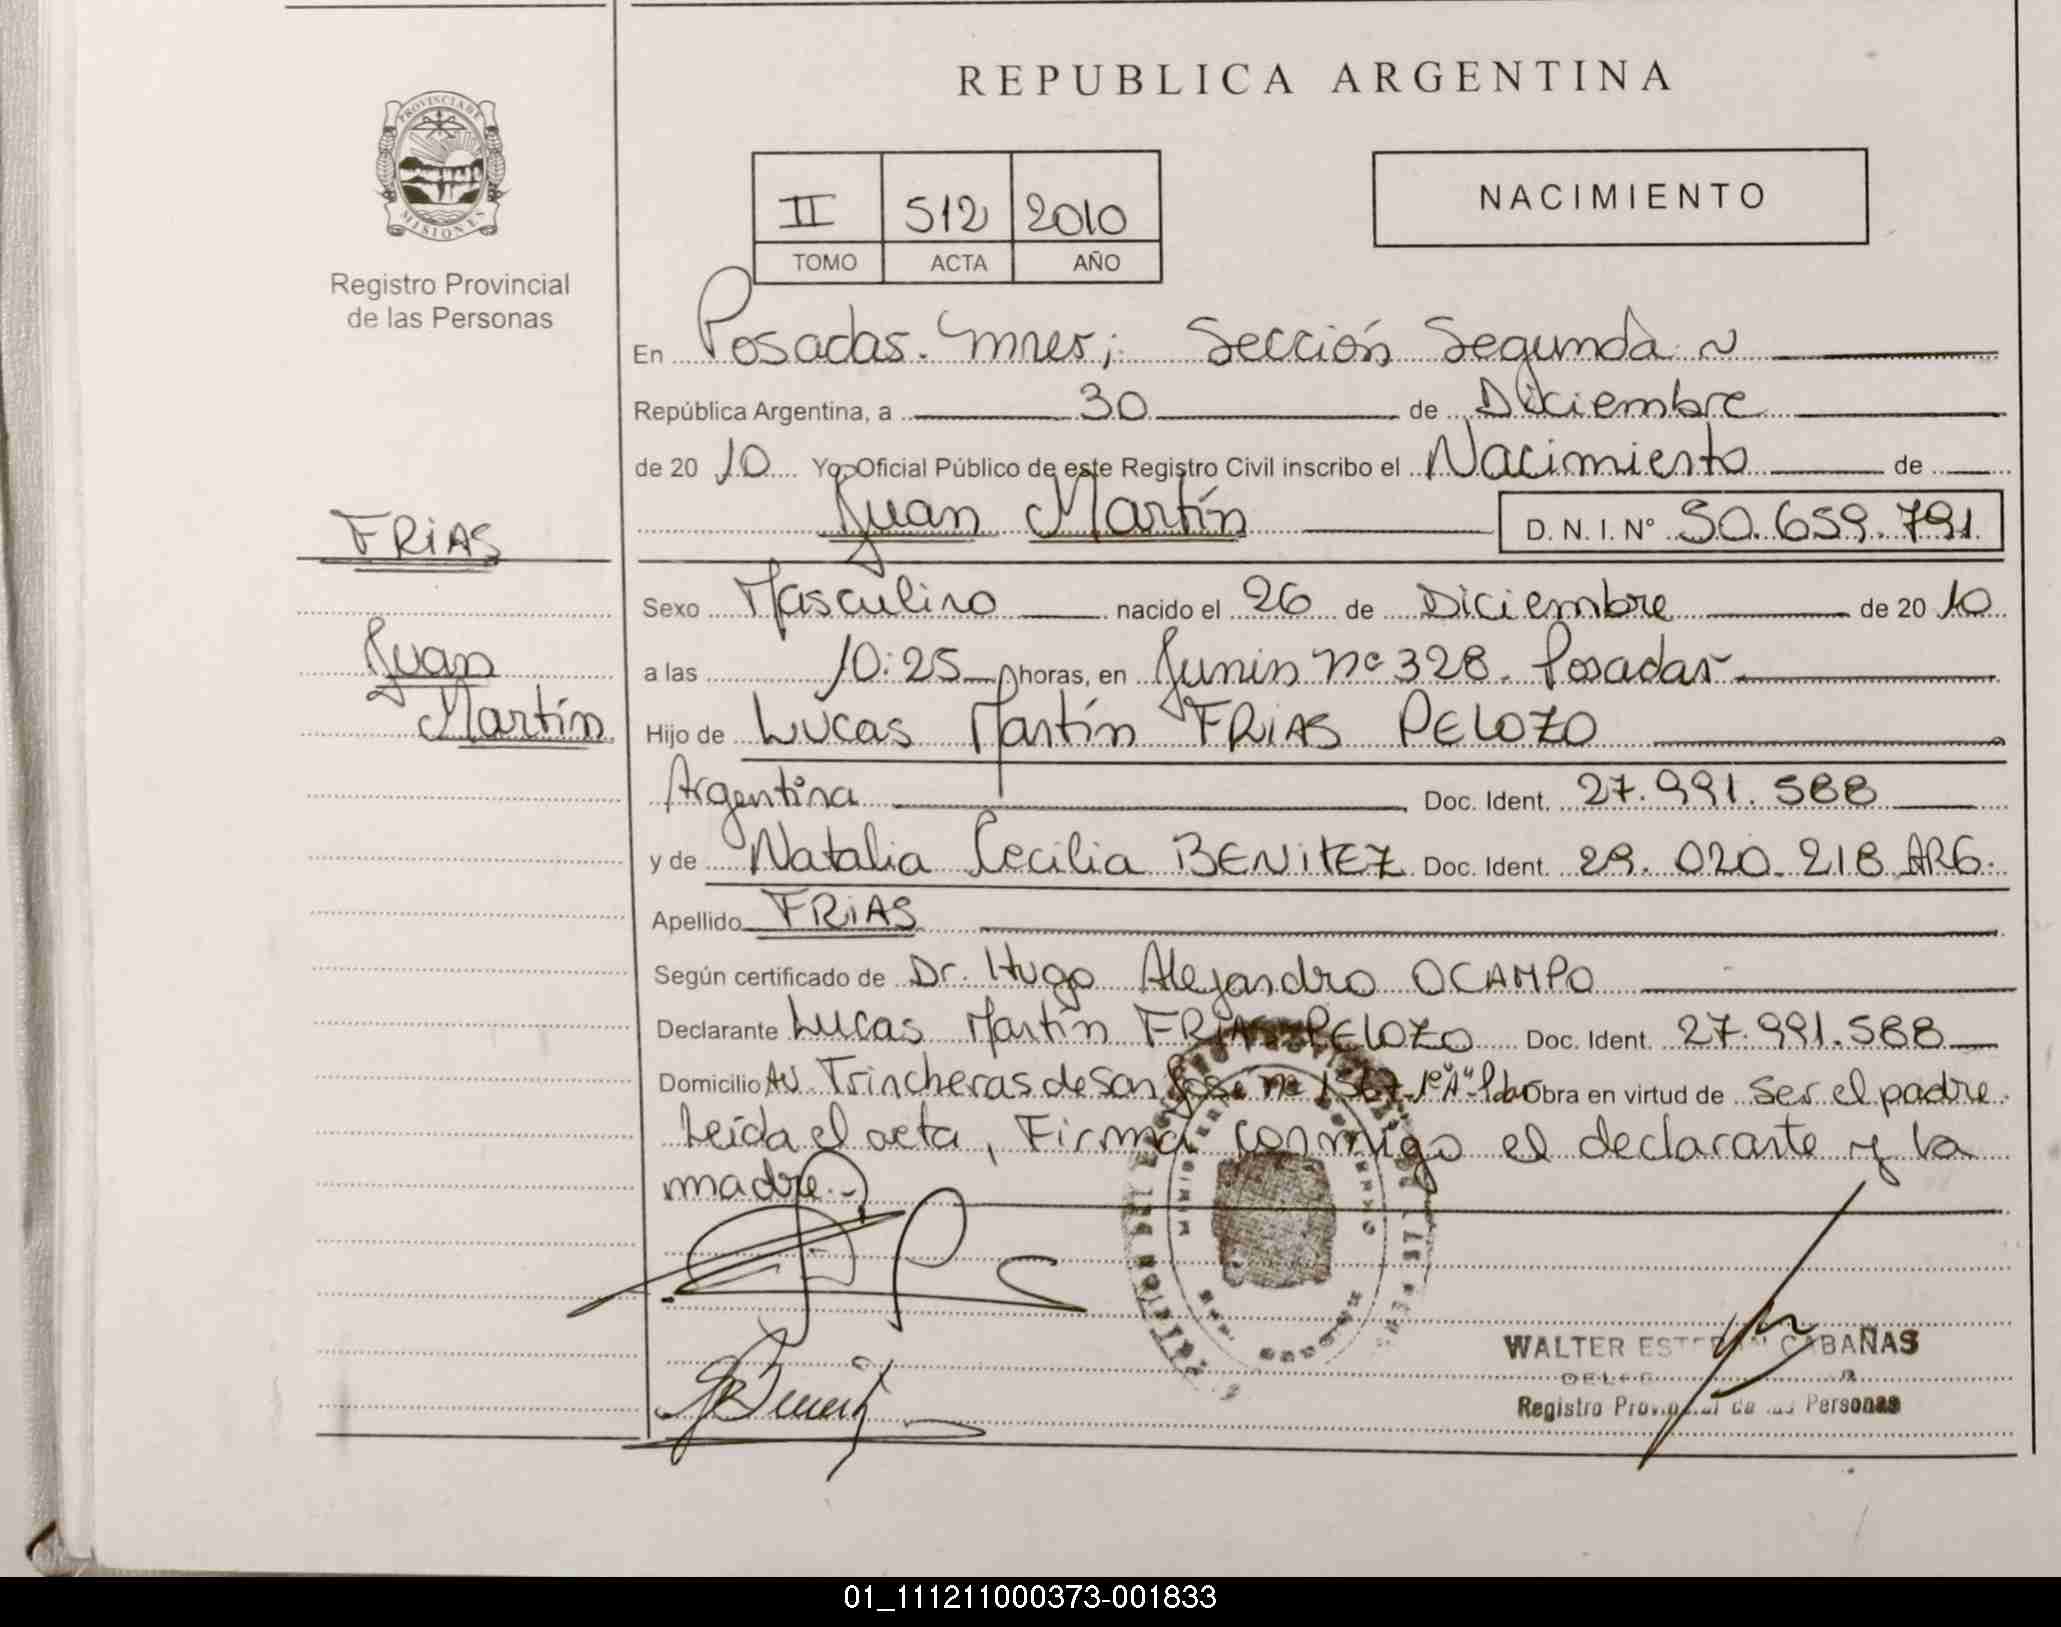 REPUBLICA ARGENTINA
PROVINCIA DE
MISIONES
Registro Provincial
de las Personas
II 512 2010
TOMO ACTA AÑO
NACIMIENTO
En Posadas. Mnes; Sección Segunda
República Argentina, a 30 de Diciembre
de 20 10 Yo, Oficial Público de este Registro Civil inscribo el Nacimiento de
Juan Martín D. N. I. Nº 50.659.791
FRIAS
Juan
Martín
Sexo Masculino nacido el 26 de Diciembre de 20 10
a las 10:25 horas, en Junin nº 328. Posadas
Hijo de Lucas Martín FRIAS PELOZO
Argentina Doc. Ident. 27.991.588
y de Natalia Cecilia BENITEZ Doc. Ident. 29.020.218 ARG.
Apellido FRIAS
Según certificado de Dr. Hugo Alejandro OCAMPO
Declarante Lucas Martín FRIAS PELOZO Doc. Ident. 27.991.588
Domicilio Av. Trincheras de San José nº 1567 1º "A" Obra en virtud de ser el padre
Leída el acta, Firma conmigo el declarante y la
madre.-
WALTER CABAÑAS
Registro Provincial de las Personas
01_111211000373-001833